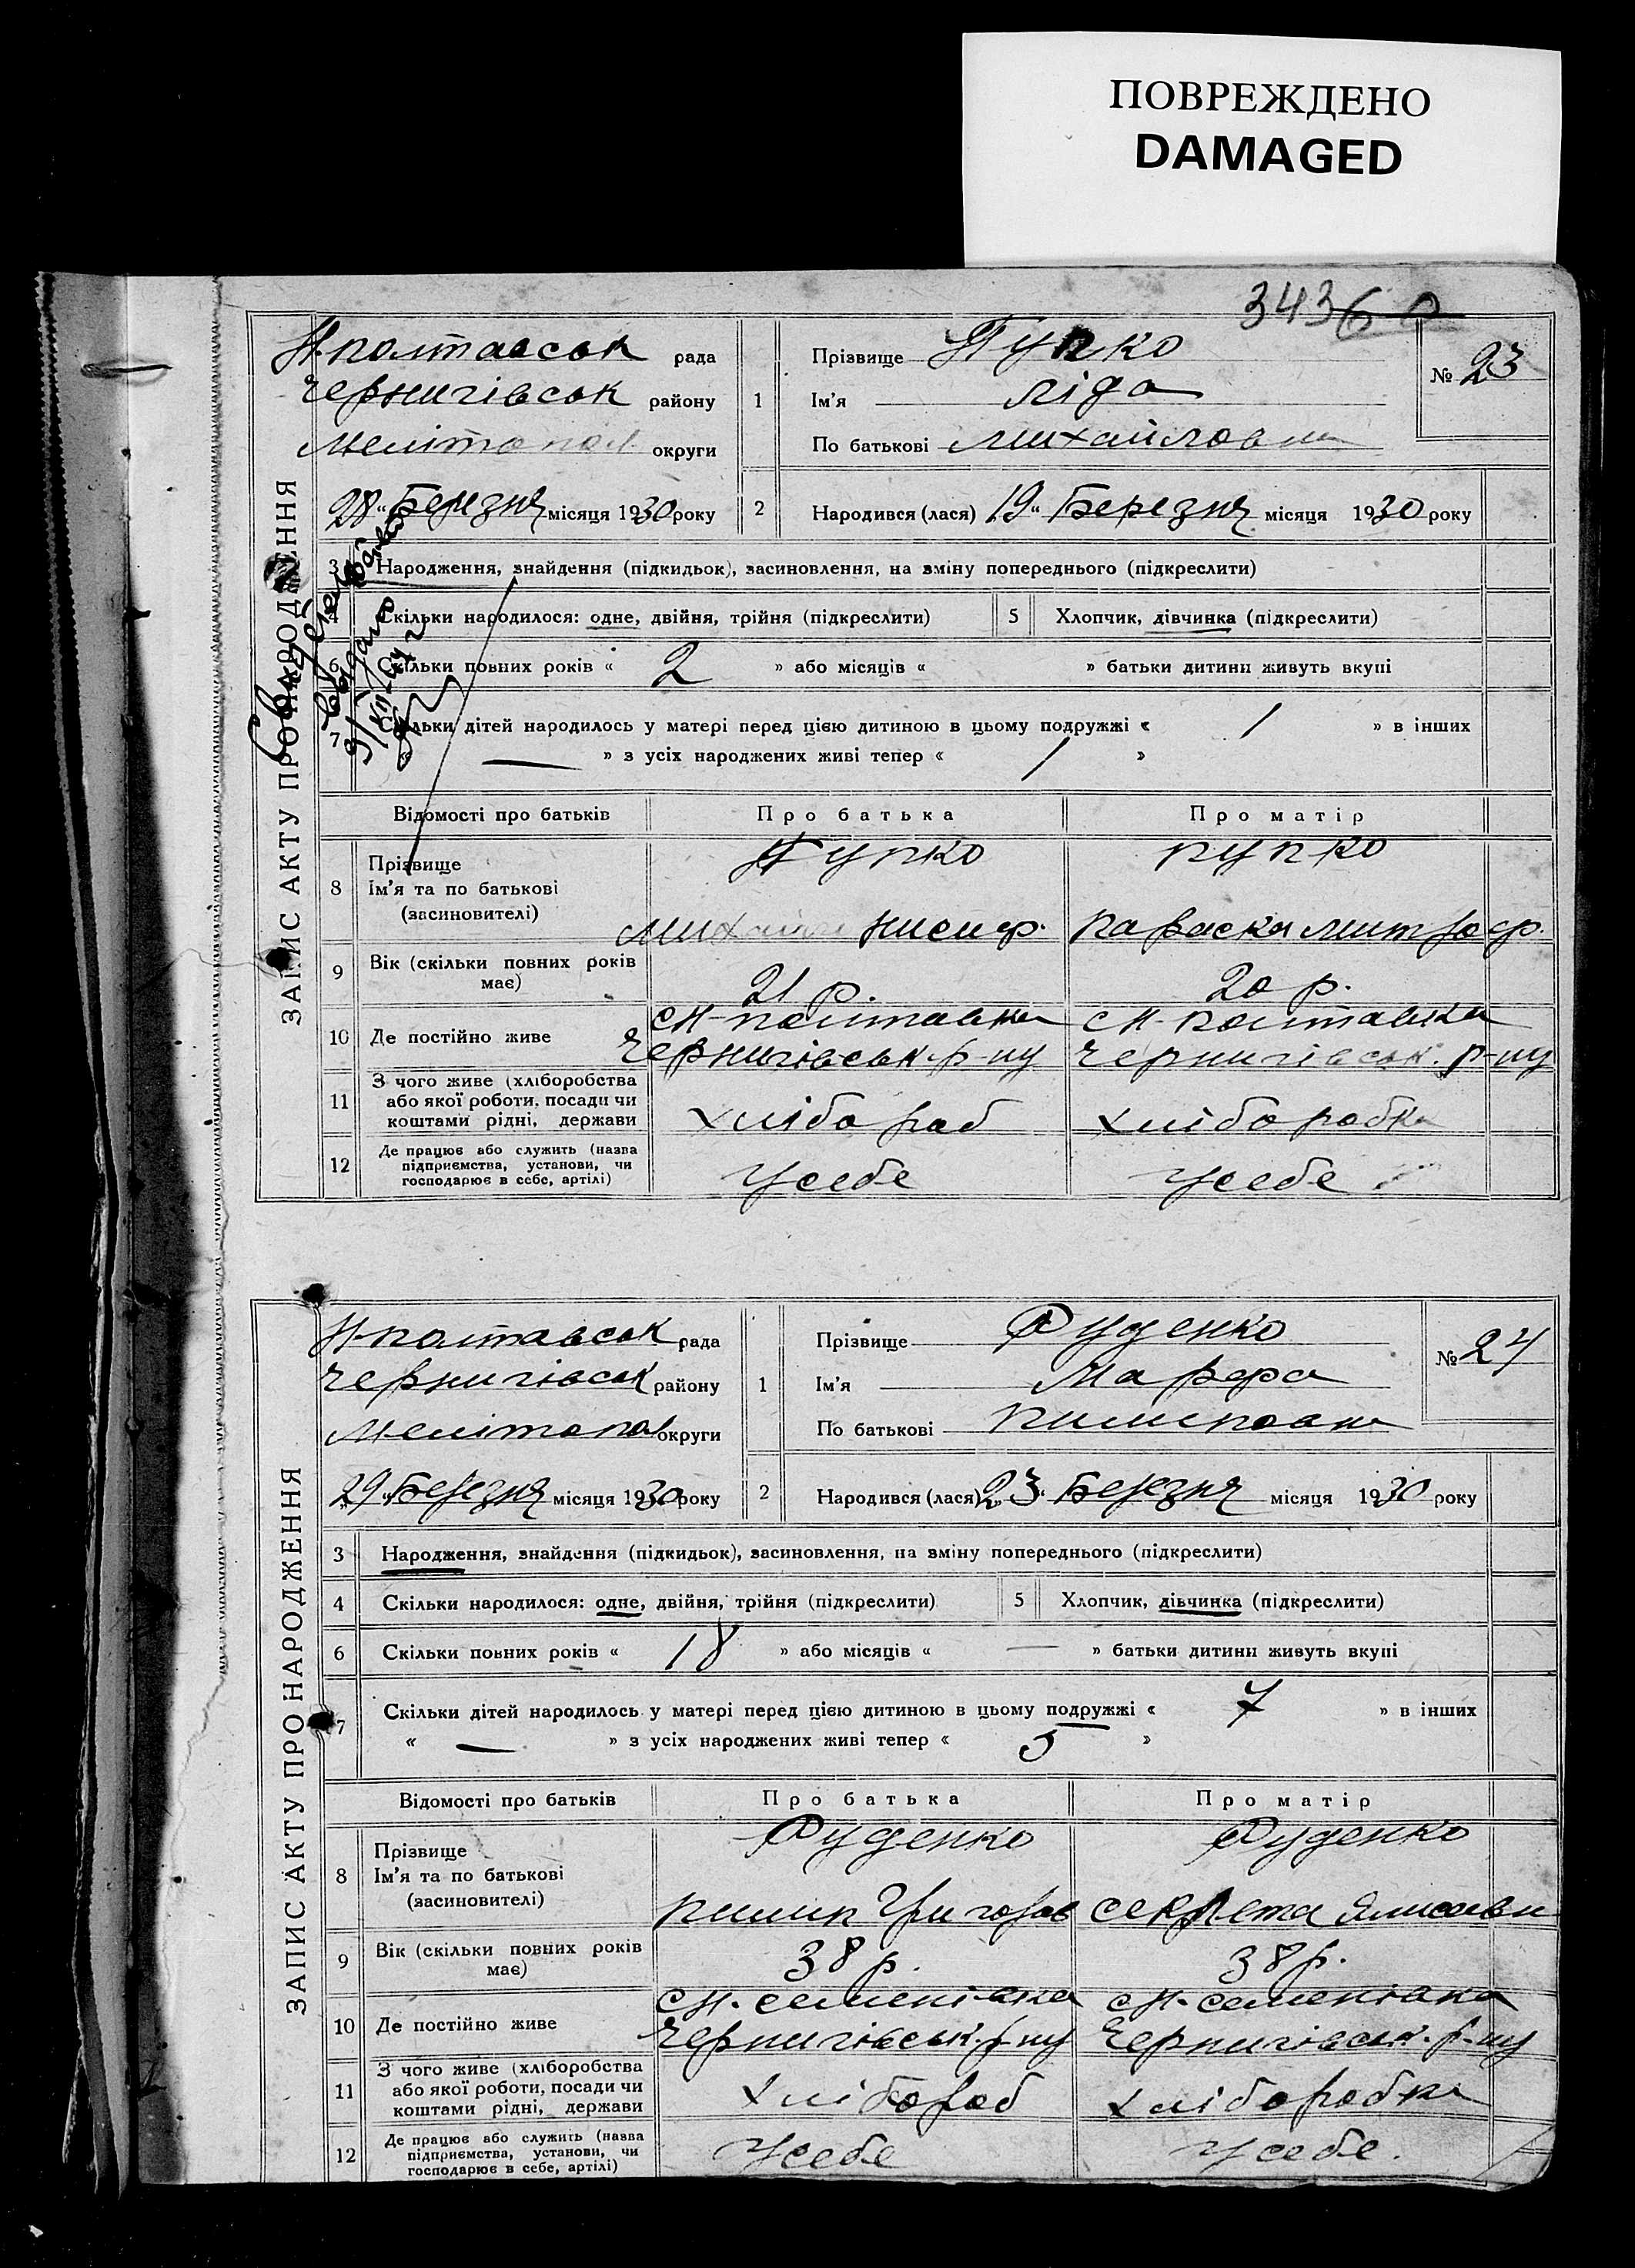 ПОВРЕЖДЕНО
DAMAGED
3436
Н-полтавськ рада
Чернигівськ району
Мелітопол округи
ЗАПИС АКТУ ПРО НАРОДЖЕННЯ
Прізвище Пупко
№ 23
1 Ім'я Ліда
По батькові Михайловна
„28“ Березня місяця 1930 року
2 Народився (лася) „19“ Березня місяця 1930 року
3 Народження, знайдення (підкидьок), засиновлення, на зміну попереднього (підкреслити)
4 Скільки народилося: одне, двійня, трійня (підкреслити)
5 Хлопчик, дівчинка (підкреслити)
6 Скільки повних років « 2 » або місяців « » батьки дитини живуть вкупі
7 Скільки дітей народилось у матері перед цією дитиною в цьому подружжі « 1 » в інших
« — » з усіх народжених живі тепер « 1 »
Відомості про батьків Про батька Про матір
8 Прізвище
Ім'я та по батькові
(засиновителі)
Пупко
Пупко
Михайло Нисиф.
Параска Митроф.
9 Вік (скільки повних років має)
21 р.
20 р.
10 Де постійно живе
с Н-полтавка
Чернигівськ. р-ну
с Н-полтавка
Чернигівськ. р-ну
11 З чого живе (хліборобства
або якої роботи, посади чи
коштами рідні, держави
хлібороб
хліборобка
12 Де працює або служить (назва
підприємства, установи, чи
господарює в себе, артілі)
У себе
У себе
Н-полтавськ рада
Чернигівськ району
Мелітопол округи
ЗАПИС АКТУ ПРО НАРОДЖЕННЯ
Прізвище Руденко
№ 24
1 Ім'я Марфа
По батькові Пилиповна
„29“ Березня місяця 1930 року
2 Народився (лася) „23“ Березня місяця 1930 року
3 Народження, знайдення (підкидьок), засиновлення, на зміну попереднього (підкреслити)
4 Скільки народилося: одне, двійня, трійня (підкреслити)
5 Хлопчик, дівчинка (підкреслити)
6 Скільки повних років « 18 » або місяців « — » батьки дитини живуть вкупі
7 Скільки дітей народилось у матері перед цією дитиною в цьому подружжі « 7 » в інших
« — » з усіх народжених живі тепер « 5 »
Відомості про батьків Про батька Про матір
8 Прізвище
Ім'я та по батькові
(засиновителі)
Руденко
Руденко
Пилип Григоров
Секлета
9 Вік (скільки повних років має)
38 р.
38 р.
10 Де постійно живе
с Н. Семенівка
Чернигівськ. р-ну
с Н. Семенівка
Чернигівськ. р-ну
11 З чого живе (хліборобства
або якої роботи, посади чи
коштами рідні, держави
хлібороб
хліборобка
12 Де працює або служить (назва
підприємства, установи, чи
господарює в себе, артілі)
У себе
У себе.